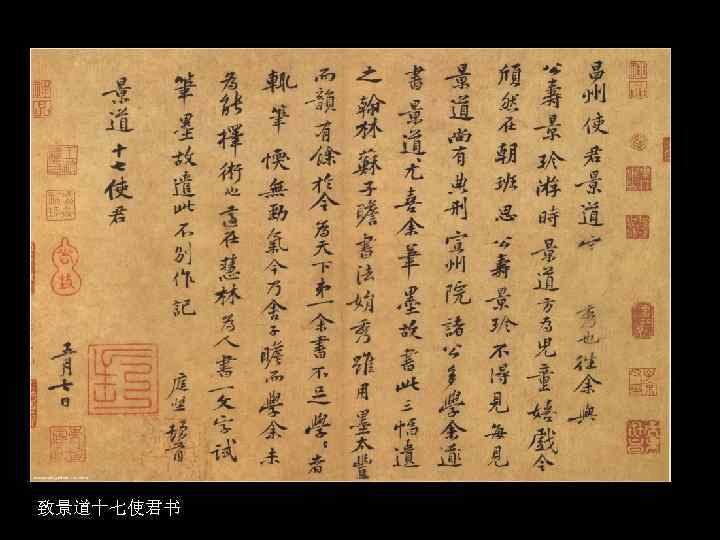 昌州使君景道 秀也往余與
公壽景珍游時景道方為兒童嬉戲今
頎然在朝班思公壽景珍不得見每見
景道尚有典刑宣州院諸公多學余
書景道尤喜余筆墨故書此三幅遺
之翰林蘇子瞻書法娟秀雖用墨太豐
而韻有餘於今為天下第一余書不足學學者
輒筆愞無勁氣今乃舍子瞻而學余未
為能擇術也適在慧林為人書一文字試
筆墨故遣此不別作記 庭堅頓首
景道十七使君
五月七日
致景道十七使君书